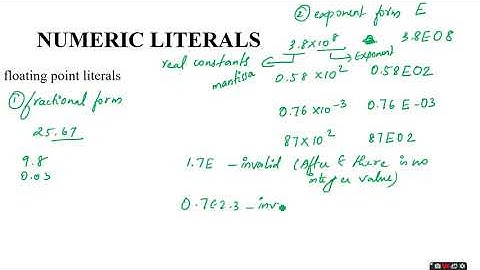 NUMERIC LITERALS
floating point literals
① fractional form
25.67
9.8
0.03
② exponent form E
3.8x10⁸ 3.8E08
real constants
mantissa Exponent
0.58 x10² 0.58E02
0.76 x10⁻³ 0.76 E-03
87x10² 87E02
1.7E - invalid (After E there is no
integer value)
0.7E2.3 - inv